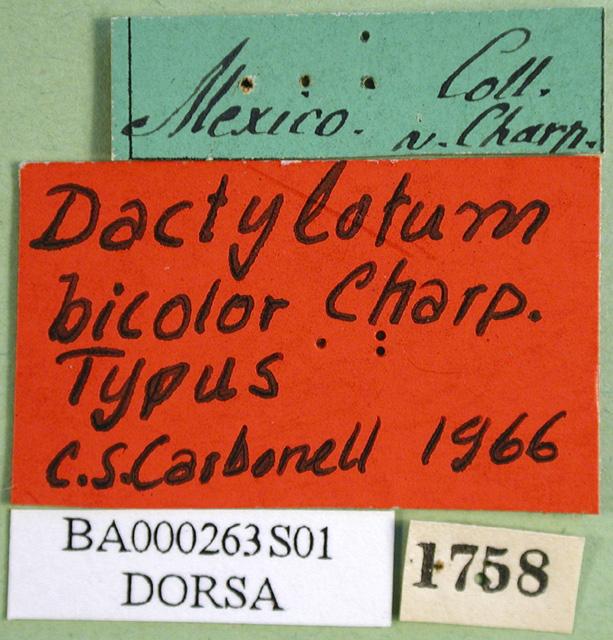 Mexico. Coll.
v. Charp.
Dactylotum
bicolor Charp.
Typus
C.S.Carbonell 1966
BA000263S01
DORSA
1758